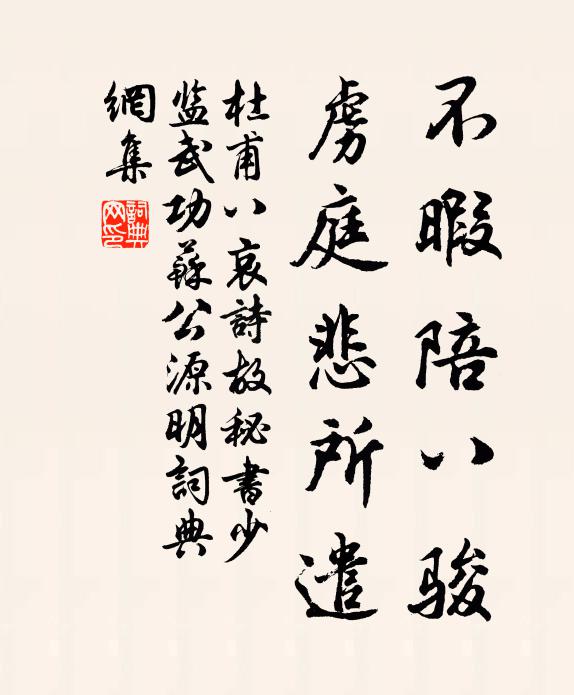 不暇陪八骏
虏庭悲所遣
杜甫八哀詩故秘書少
監武功蘇公源明詞典
網集
詞典網印